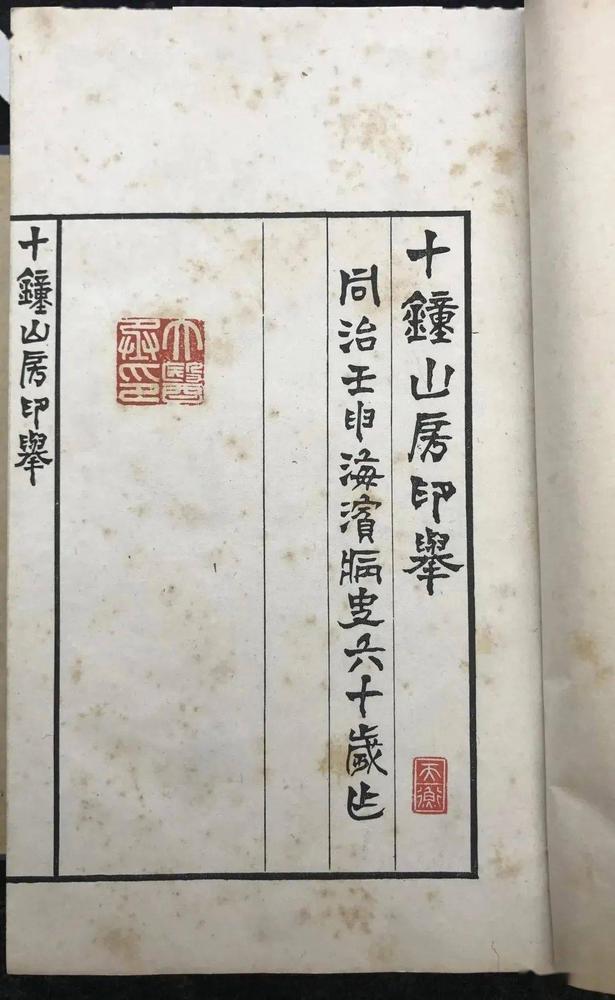 十鐘山房印舉
同治壬申海濱病叟六十歲作
天衡
十鐘山房印舉